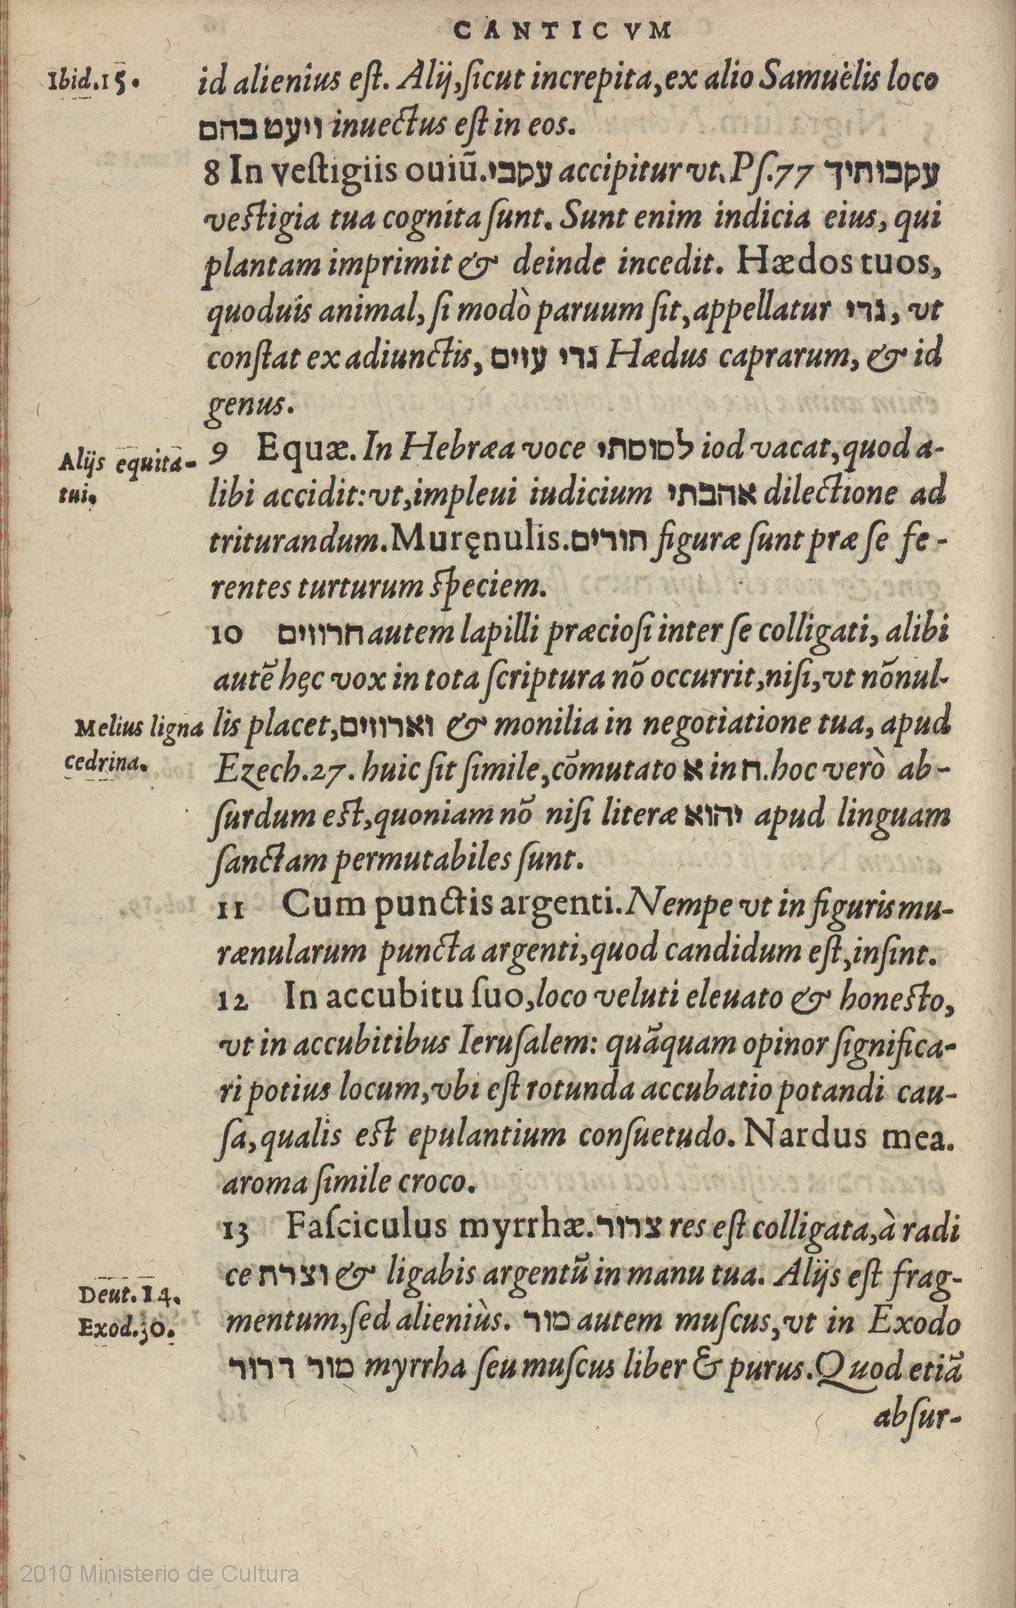 CANTICVM
Ibid.15.
id alieniùs eſt. Alij, ſicut increpita, ex alio Samuëlis loco
ויעט בהם inuectus eſt in eos.
8 In veſtigiis ouiũ. עקבי accipitur vt. Pſ.77 עקבותיך
veſtigia tua cognita ſunt. Sunt enim indicia eius, qui
plantam imprimit & deinde incedit. Hædos tuos,
quoduis animal, ſi modò paruum ſit, appellatur גדי, vt
conſtat ex adiunctis, גדי עזים Hædus caprarum, & id
genus.
Alijs equita-
tui.
9 Equæ. In Hebræa voce לסוסתי iod vacat, quod a-
libi accidit: vt, impleui iudicium אהבתי dilectione ad
triturandum. Muręnulis. תורים figuræ ſunt præ ſe fe-
rentes turturum ſpeciem.
10 חרוזים autem lapilli præcioſi inter ſe colligati, alibi
autẽ hęc vox in tota ſcriptura nõ occurrit, niſi, vt nõnul-
Melius ligna
cedrina.
lis placet, וארוזים & monilia in negotiatione tua, apud
Ezech.27. huic ſit ſimile, cõmutato א in ח. hoc verò ab-
ſurdum eſt, quoniam nõ niſi literæ יהוא apud linguam
ſanctam permutabiles ſunt.
11 Cum punctis argenti. Nempe vt in figuris mu-
rænularum puncta argenti, quod candidum eſt, inſint.
12 In accubitu ſuo, loco veluti eleuato & honeſto,
vt in accubitibus Ieruſalem: quãquam opinor ſignifica-
ri potius locum, vbi eſt rotunda accubatio potandi cau-
ſa, qualis eſt epulantium conſuetudo. Nardus mea.
aroma ſimile croco.
13 Faſciculus myrrhæ. צרור res eſt colligata, à radi
ce וצרת & ligabis argentũ in manu tua. Alijs eſt frag-
Deut.14.
Exod.30.
mentum, ſed alieniùs. מור autem muſcus, vt in Exodo
מור דרור myrrha ſeu muſcus liber & purus. Quod etiã
abſur-
2010 Ministerio de Cultura